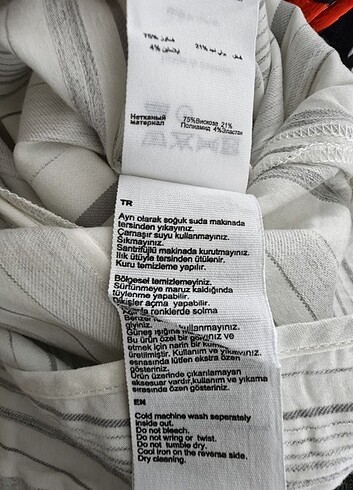 75%
4%
21%
Нетканый
материал
75%Вискоза 21%
Полиамид 4%Эластан
TR
Ayrı olarak soğuk suda makinada
tersinden yıkayınız.
Çamaşır suyu kullanmayınız.
Sıkmayınız.
Santrifüjlü makinada kurutmayınız.
Ilık ütüyle tersinden ütülenir.
Kuru temizleme yapılır.
Bölgesel temizlemeyiniz.
Sürtünmeye maruz kaldığında
tüylenme yapabilir.
Dikişler açma yapabilir.
renklerde solma
yapabilir.
giyiniz.
kullanmayınız.
Güneş ışığına
Bu ürün özel bir görünüz ve
etmek için narin bir
üretilmiştir. Kullanım ve yıkama
esnasında lütfen ekstra özen
gösteriniz.
Ürün üzerinde çıkarılamayan
aksesuar vardır,kullanım ve yıkama
sırasında özen gösteriniz.
EN
Cold machine wash seperately
inside out.
Do not bleach.
Do not wring or twist.
Do not tumble dry.
Cool iron on the reverse side.
Dry cleaning.